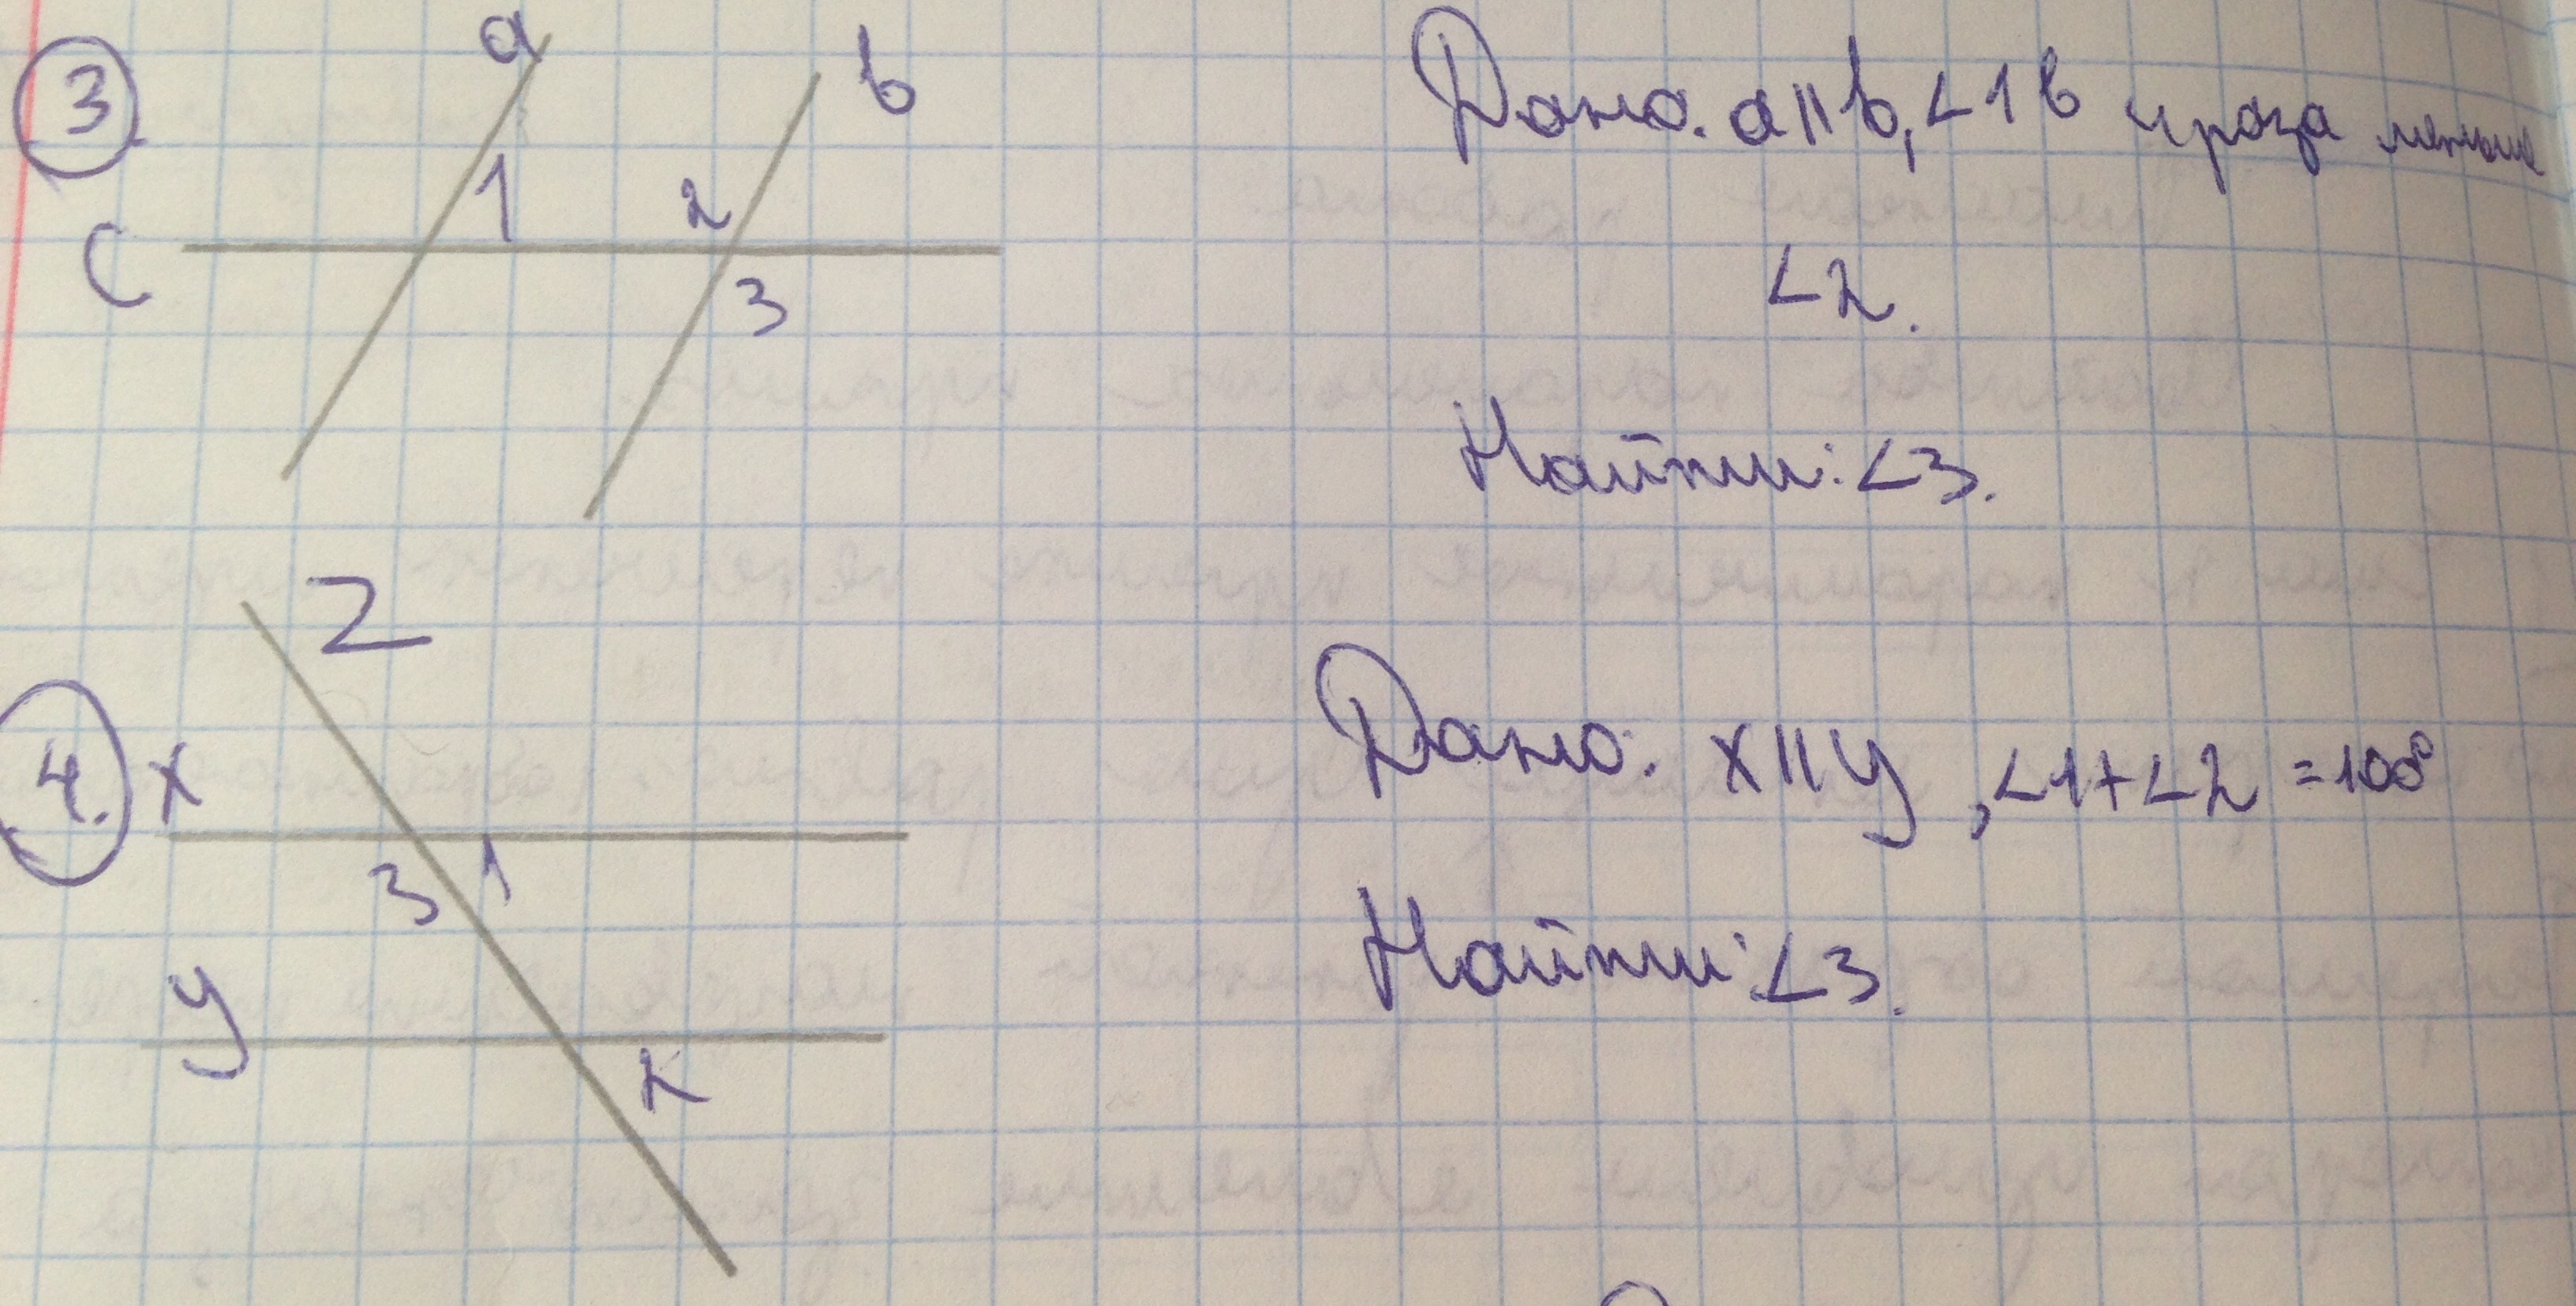 3
a
b
1
2
c
3
Дано: a||b, <1 в 4 раза меньше
<2.
Найти: <3.
4.
z
x
3
1
y
2
Дано: x||y, <1+<2 =100°
Найти: <3.